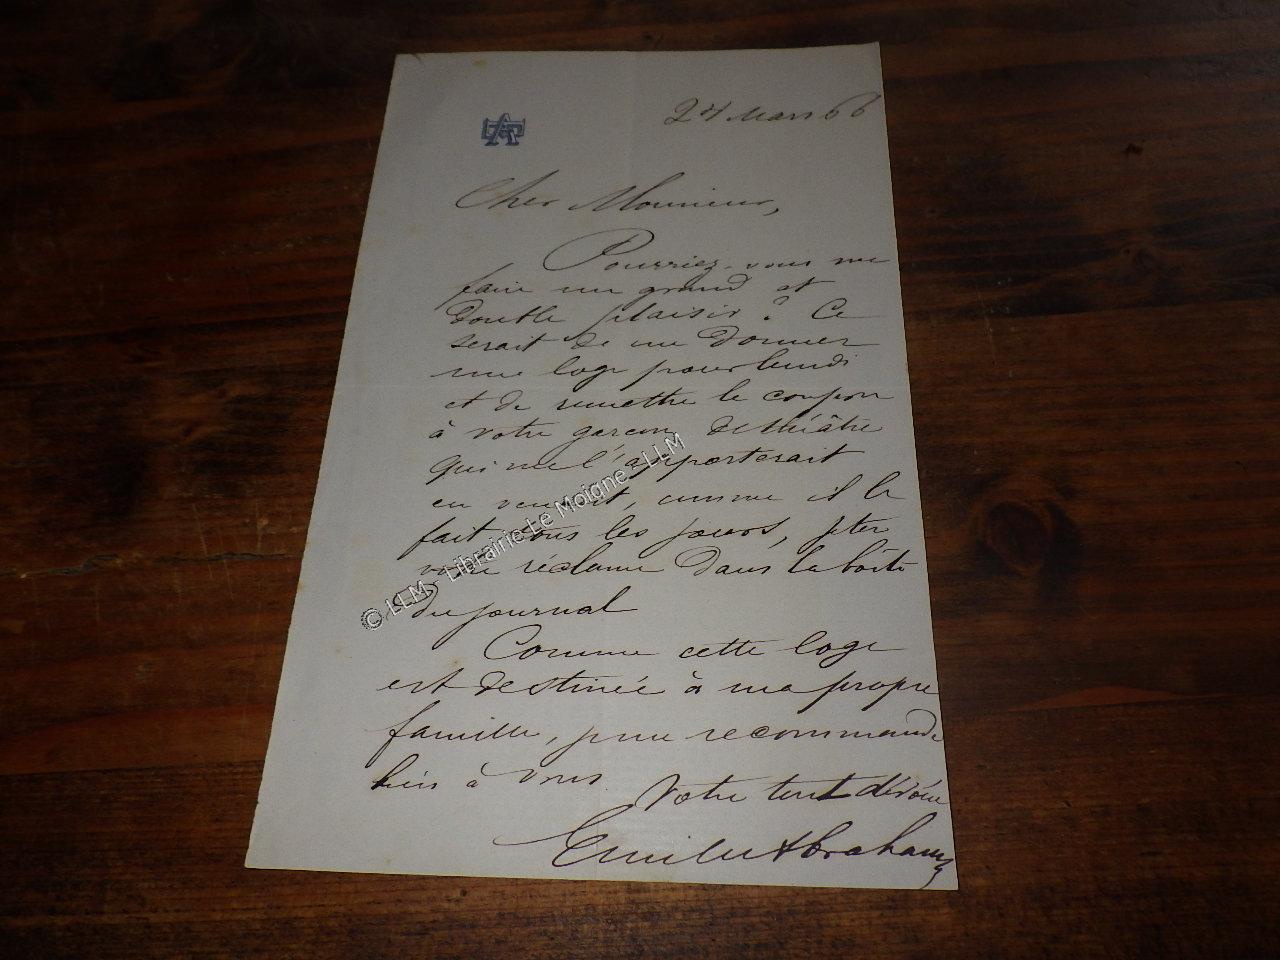 24 Mars 66
Cher Monsieur,
Pourriez-vous me
faire un grand et
double plaisir ? Ce
serait de me donner
une loge pour lundi
et de remettre le coupon
à votre garçon de théâtre
qui me l'apporterait
en venant, comme il le
fait tous les jours, jeter
votre réclame dans la boîte
du journal
Comme cette loge
est destinée à ma propre
famille, je me recommande
bien à vous
Votre tout dévoué
Emile Abraham
© LLM - Librairie Le Moigne - LLM